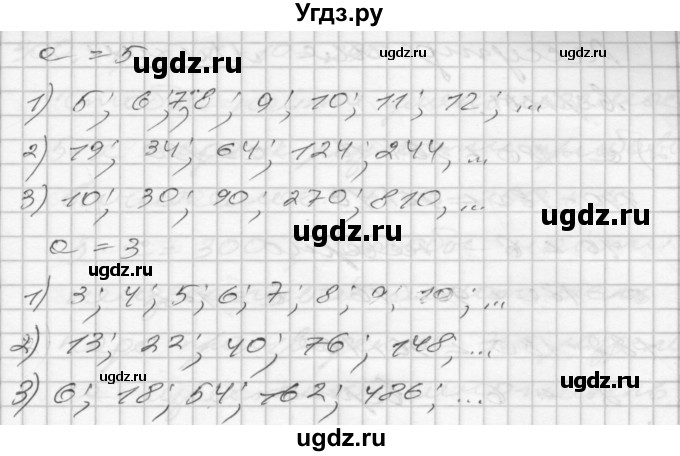 Угдз.ру
a = 5
ugdz.ru ugdz.ru ugdz.ru
1) 5; 6; 7; 8; 9; 10; 11; 12; ...
ugdz.ru
2) 19; 34; 64; 124; 244, ...
3) 10; 30; 90; 270; 810, ...
ugdz.ru ugdz.ru
a = 3
ugdz.ru
1) 3; 4; 5; 6; 7; 8; 9; 10; ...
ugdz.ru
2) 13; 22; 40; 76; 148; ...
ugdz.ru ugdz.ru ugdz.ru
3) 6; 18; 54; 162; 486; ...
ugdz.ru